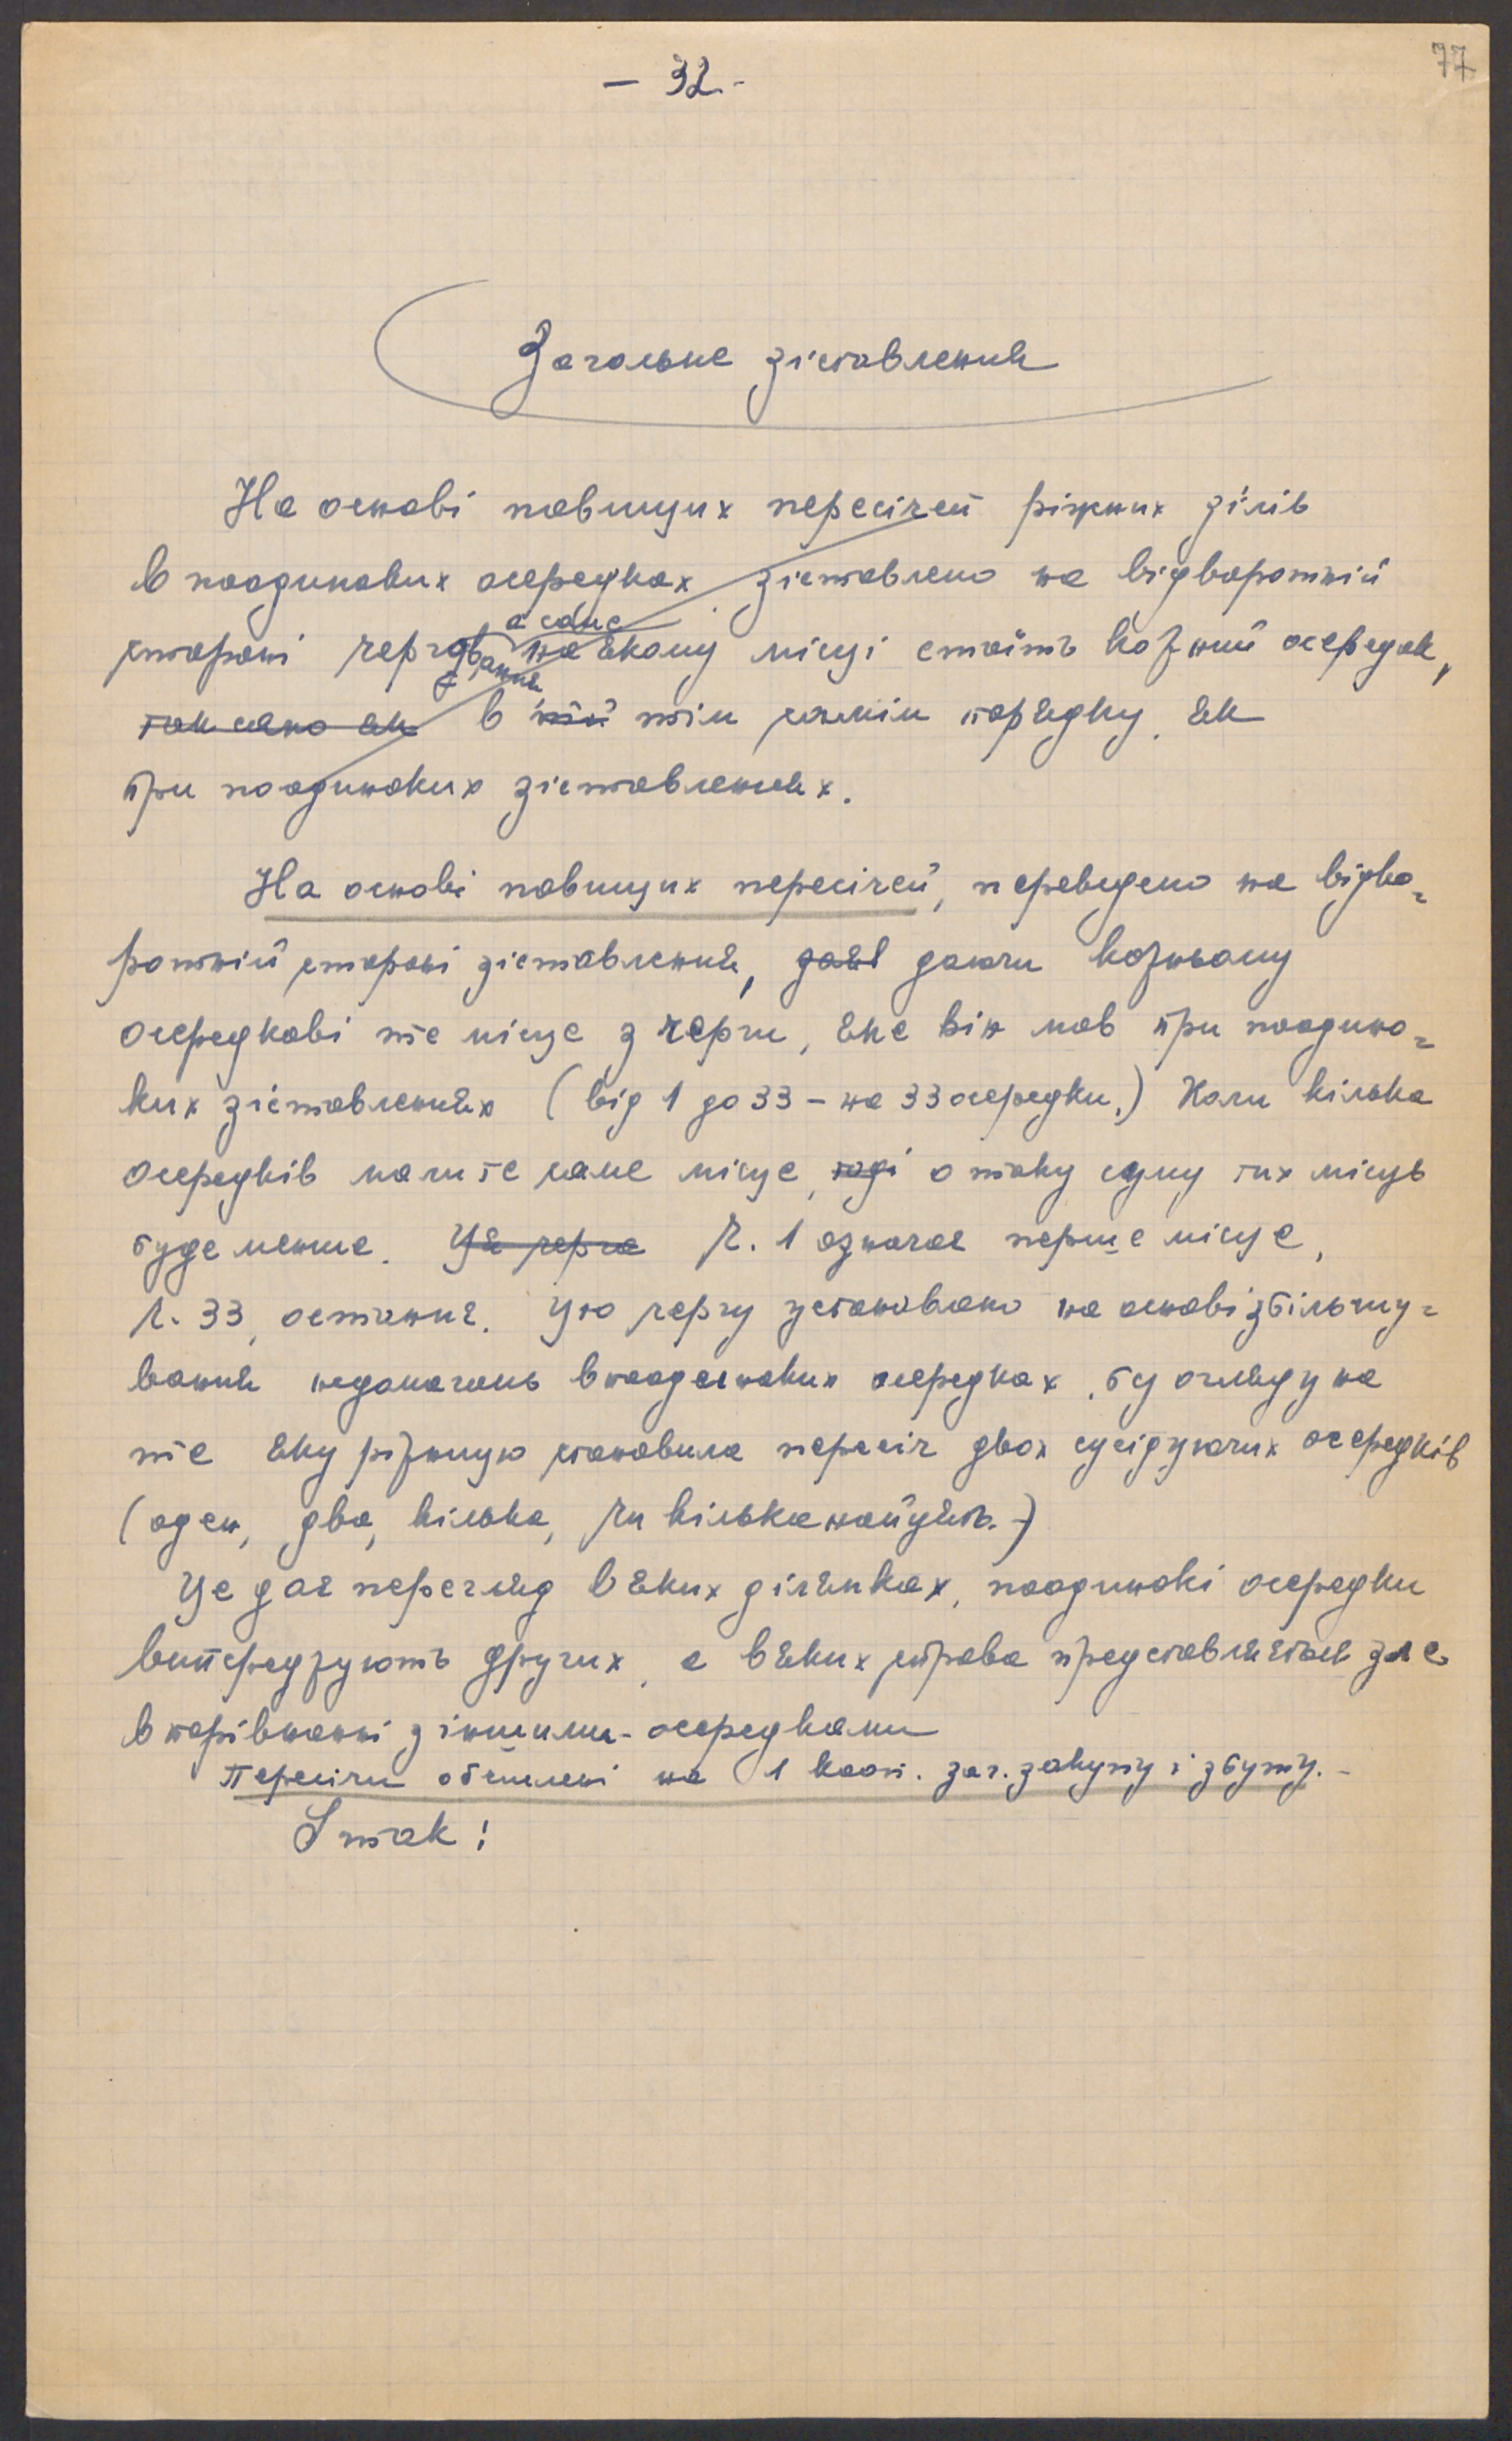 77
- 32 -
Загальне зіставлення
На основі повищих пересічей ріжних зілів
в поодиноких осередках зіставлено на відворотній
стороні чергування а саме на якому місці стоїть кожний осередок,
так само як в тій тім самім порядку, як
при поодиноких зіставленнях.
На основі повищих пересічей, переведено на відво=
ротній стороні зіставлення, даючи кожньому
осередкові те місце з черги, яке він мав при поодино=
ких зіставленнях (від 1 до 33 - на 33 осередки.) Коли кілька
осередків мали те саме місце, тоді о таку суму тих місць
буде менше. Ця черга Ч. 1 означає перше місце,
ч. 33, останнє. Цю чергу установлено на основі збільшу=
вання недомагань в поодиноких осередках, без огляду на
те яку ріжницю становила пересіч двох сусідуючих осередків
(оден, два, кілька, чи кільканайцять.-)
Це дає перегляд в яких ділянках, поодинокі осередки
випереджують других, а в яких справа представляється зле
в порівнанні з іншими осередками
Пересічи обчислені на 1 кооп. заг. закупу і збуту.-
І так!